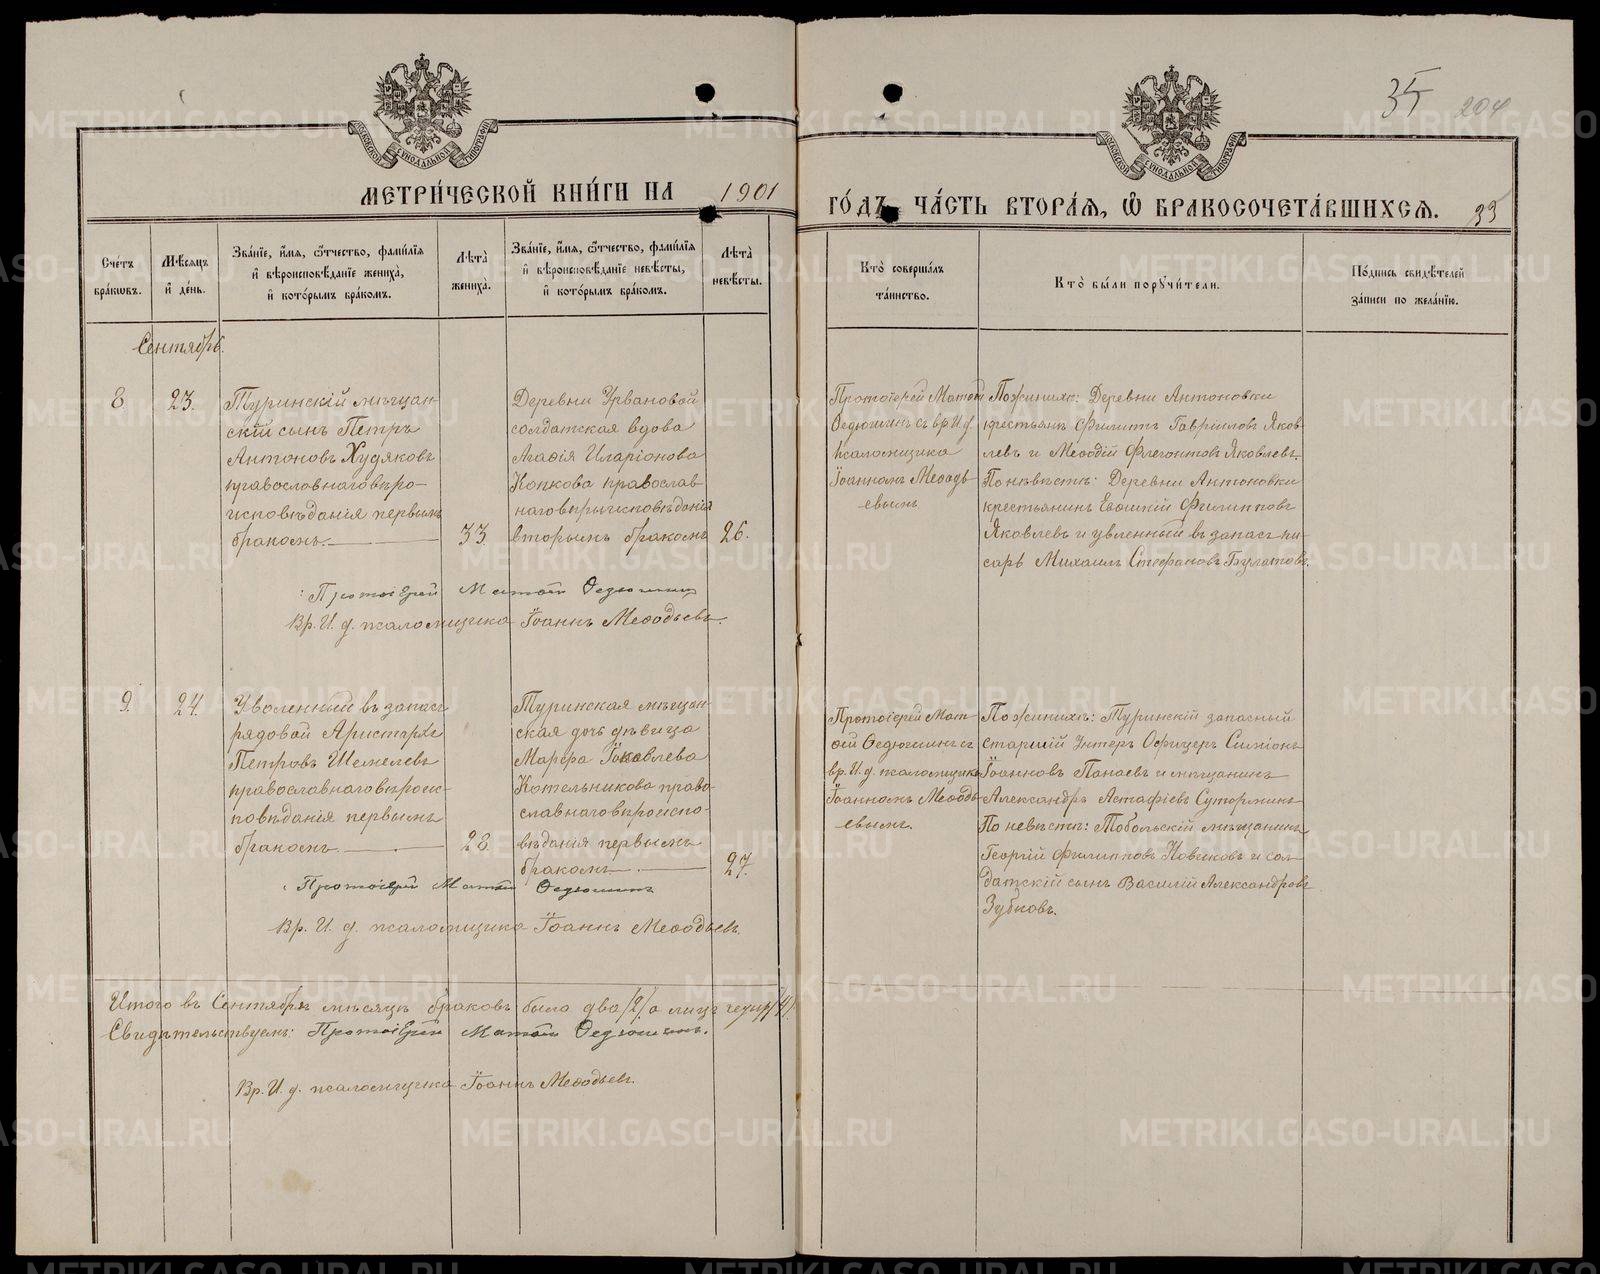 35 204
МОСКОВСКОЙ СѴНОДАЛЬНОЙ ТИПОГРАФІИ
МОСКОВСКОЙ СѴНОДАЛЬНОЙ ТИПОГРАФІИ
МЕТРИ́ЧЕСКОЙ КНИ́ГИ НА 1901
ГО́ДЪ, ЧА́СТЬ ВТОРА́Ѧ, Ѽ БРАКОСОЧЕТА́ВШИХСѦ. 33
Сче́тъ бра́кѡвъ.
Мѣ́сяцъ и҆ де́нь.
Зва́нїе, и҆́мѧ, ѻ҆́тчество, фами́лїѧ
и҆ вѣроисповѣ́данїе жениха̀,
и҆ кото́рымъ бра́комъ.
Лѣ́та жениха̀.
Зва́нїе, и҆́мѧ, ѻ҆́тчество, фами́лїѧ
и҆ вѣроисповѣ́данїе невѣ́сты,
и҆ кото́рымъ бра́комъ.
Лѣ́та невѣ́сты.
Кто̀ соверша́лъ
та́инство.
Кто̀ бы́ли порꙋчи́тели.
По́дпись свидѣ́телей
за́писи по жела́нїю.
Сентябрь.
8 23.
Туринскій мѣщан-
скій сынъ Петръ
Антоновъ Худяковъ
православнаго вѣро-
исповѣданія первымъ
бракомъ. 33.
Деревни Урвановой
солдатская вдова
Агафія Иларіонова
Копкова православ
наго вѣроисповѣданія
вторымъ бракомъ 26.
Протоіерей Матѳій
Ѳедюшинъ съ вр. И. д.
псаломщика
Іоанномъ Меѳодь-
евымъ.
По женихѣ: Деревни Антоновки
крестьяне Филиппъ Гавриловъ Яков-
левъ и Меѳодій Флегонтовъ Яковлевъ.
По невѣстѣ: Деревни Антоновки
крестьянинъ Евѳимій Филипповъ
Яковлевъ и увленный въ запасъ пи-
сарь Михаилъ Стефановъ Булатовъ.
Протоіерей Матѳій Ѳедюшинъ
Вр. И. д. псаломщика Іоаннъ Меѳодьевъ.
9. 24.
Уволенный въ запасъ
рядовой Аристархъ
Петровъ Шемелевъ
православнаго вѣроис-
повѣданія первымъ
бракомъ. 28.
Туринская мѣщан-
ская дочь дѣвица
Марфа Іаковлева
Котельникова право-
славнаго вѣроиспо-
вѣданія первымъ
бракомъ. 27.
Протоіерей Мат-
ѳій Ѳедюшинъ съ
вр. И. д. псаломщика
Іоанномъ Меѳодь-
евымъ.
По женихѣ: Туринскій запасный
старшій Унтеръ Офицеръ Симеонъ
Іоанновъ Панаевъ и мѣщанинъ
Александръ Астафіевъ Сутормин
По невѣстѣ: Тобольскій мѣщанинъ
Георгій Филипповъ Новиковъ и сол-
датскій сынъ Василій Александровъ
Зубковъ.
Протоіерей Матѳій Ѳедюшинъ
Вр. И. д. псаломщика Іоаннъ Меѳодьевъ.
Итого въ Сентябрѣ мѣсяцѣ браковъ было два /2/ а лицъ четыр /4/.
Свидѣтельствуемъ: Протоіерей Матѳій Ѳедюшинъ.
Вр. И. д. псаломщика Іоаннъ Меѳодьевъ.
METRIKI.GASO-URAL.RU